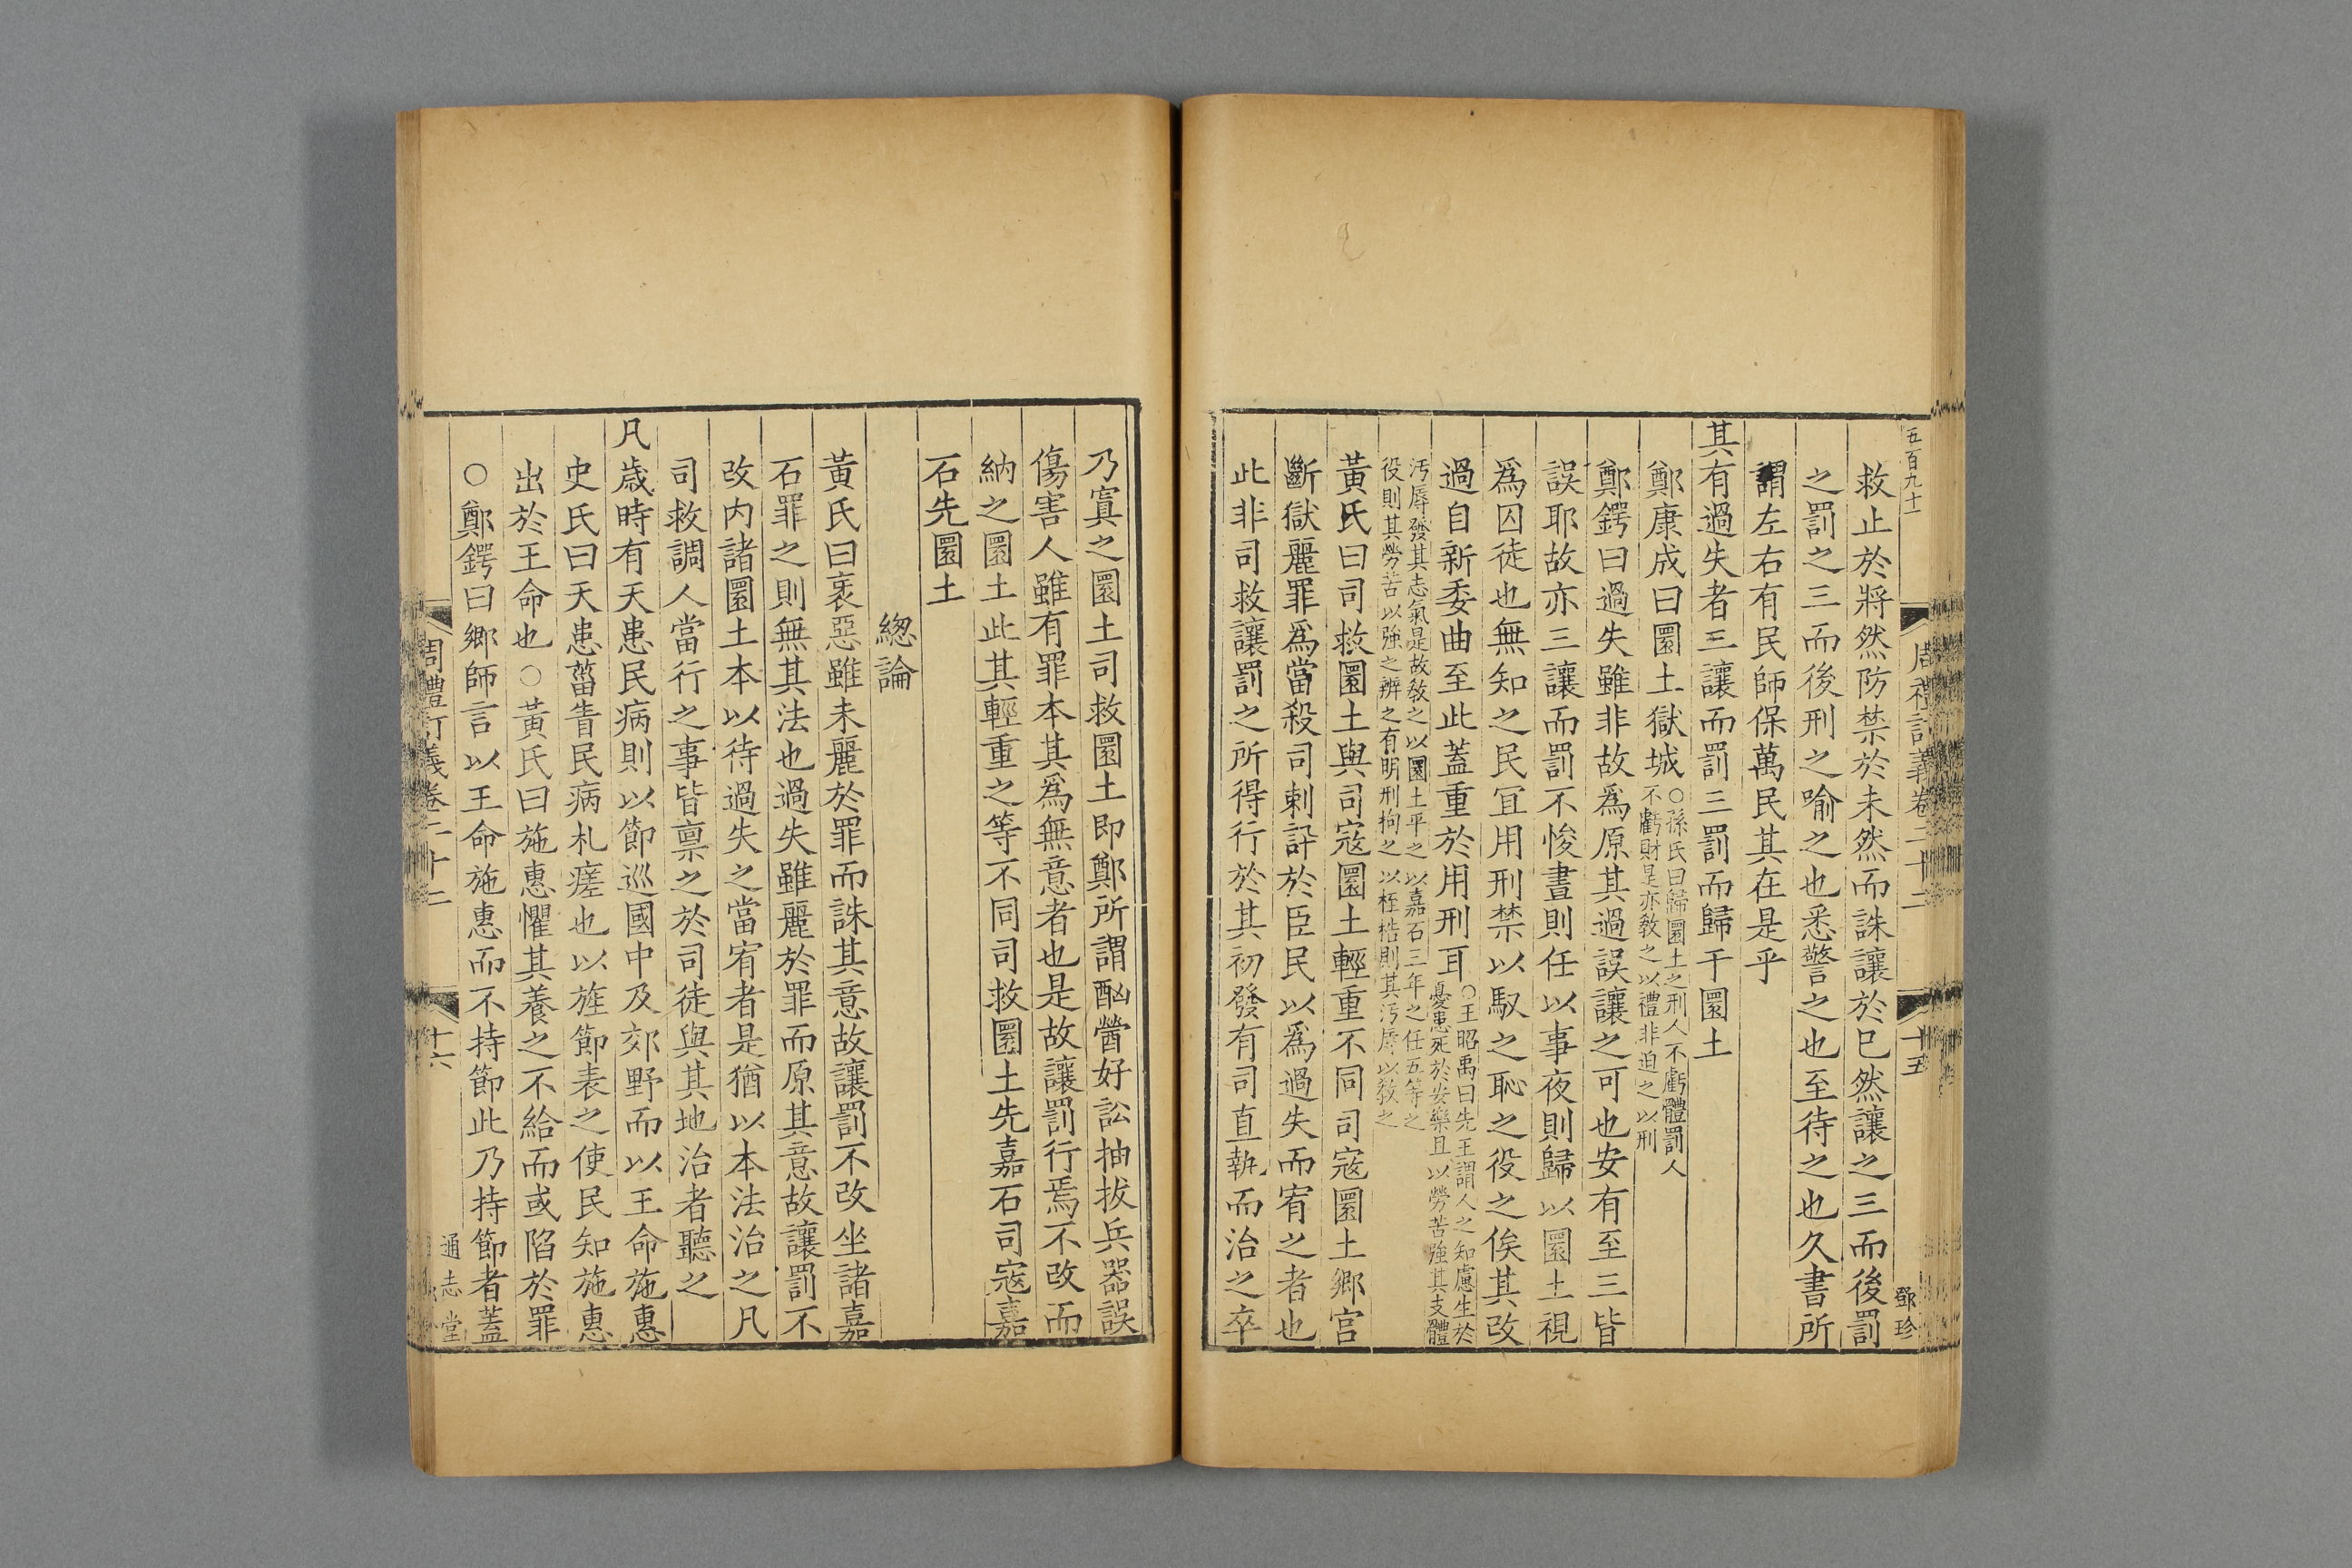 五百九十
周禮訂義卷二十二
十五
鄧珍
救止於將然防禁於未然而誅讓於已然讓之三而後罰
之罰之三而後刑之喻之也悉警之也至待之也久書所
謂左右有民師保萬民其在是乎
其有過失者三讓而罰三罰而歸于圜土
鄭康成曰圜土獄城○孫氏曰歸圜土之刑人不虧體罰人
不虧財是亦敎之以禮非迫之以刑
鄭鍔曰過失雖非故爲原其過誤讓之可也安有至三皆
誤耶故亦三讓而罰不悛晝則任以事夜則歸以圜土視
爲囚徒也無知之民宜用刑禁以馭之恥之役之俟其改
過自新委曲至此蓋重於用刑耳○王昭禹曰先王謂人之知慮生於
憂患死於安樂且以勞苦強其支體
汚辱發其志氣是故敎之以圜土平之以嘉石三年之任五等之
役則其勞苦以強之辨之有明刑拘之以桎梏則其汚辱以敎之
黃氏曰司救圜土與司寇圜土輕重不同司寇圜土鄉官
斷獄麗罪爲當殺司刺訃於臣民以爲過失而宥之者也
此非司救讓罰之所得行於其初發有司直執而治之卒
乃寘之圜土司救圜土即鄭所謂酗醟好訟抽拔兵器誤
傷害人雖有罪本其爲無意者也是故讓罰行焉不改而
納之圜土此其輕重之等不同司救圜土先嘉石司寇嘉
石先圜土
緫論
黃氏曰衺惡雖未麗於罪而誅其意故讓罰不改坐諸嘉
石罪之則無其法也過失雖麗於罪而原其意故讓罰不
改内諸圜土本以待過失之當宥者是猶以本法治之凡
司救調人當行之事皆禀之於司徒與其地治者聽之
凡歲時有天患民病則以節巡國中及郊野而以王命施惠
史氏曰天患菑眚民病札瘥也以旌節表之使民知施惠
出於王命也○黃氏曰施惠懼其養之不給而或陷於罪
○鄭鍔曰鄉師言以王命施惠而不持節此乃持節者蓋
周禮訂義卷二十二
十六
通志堂